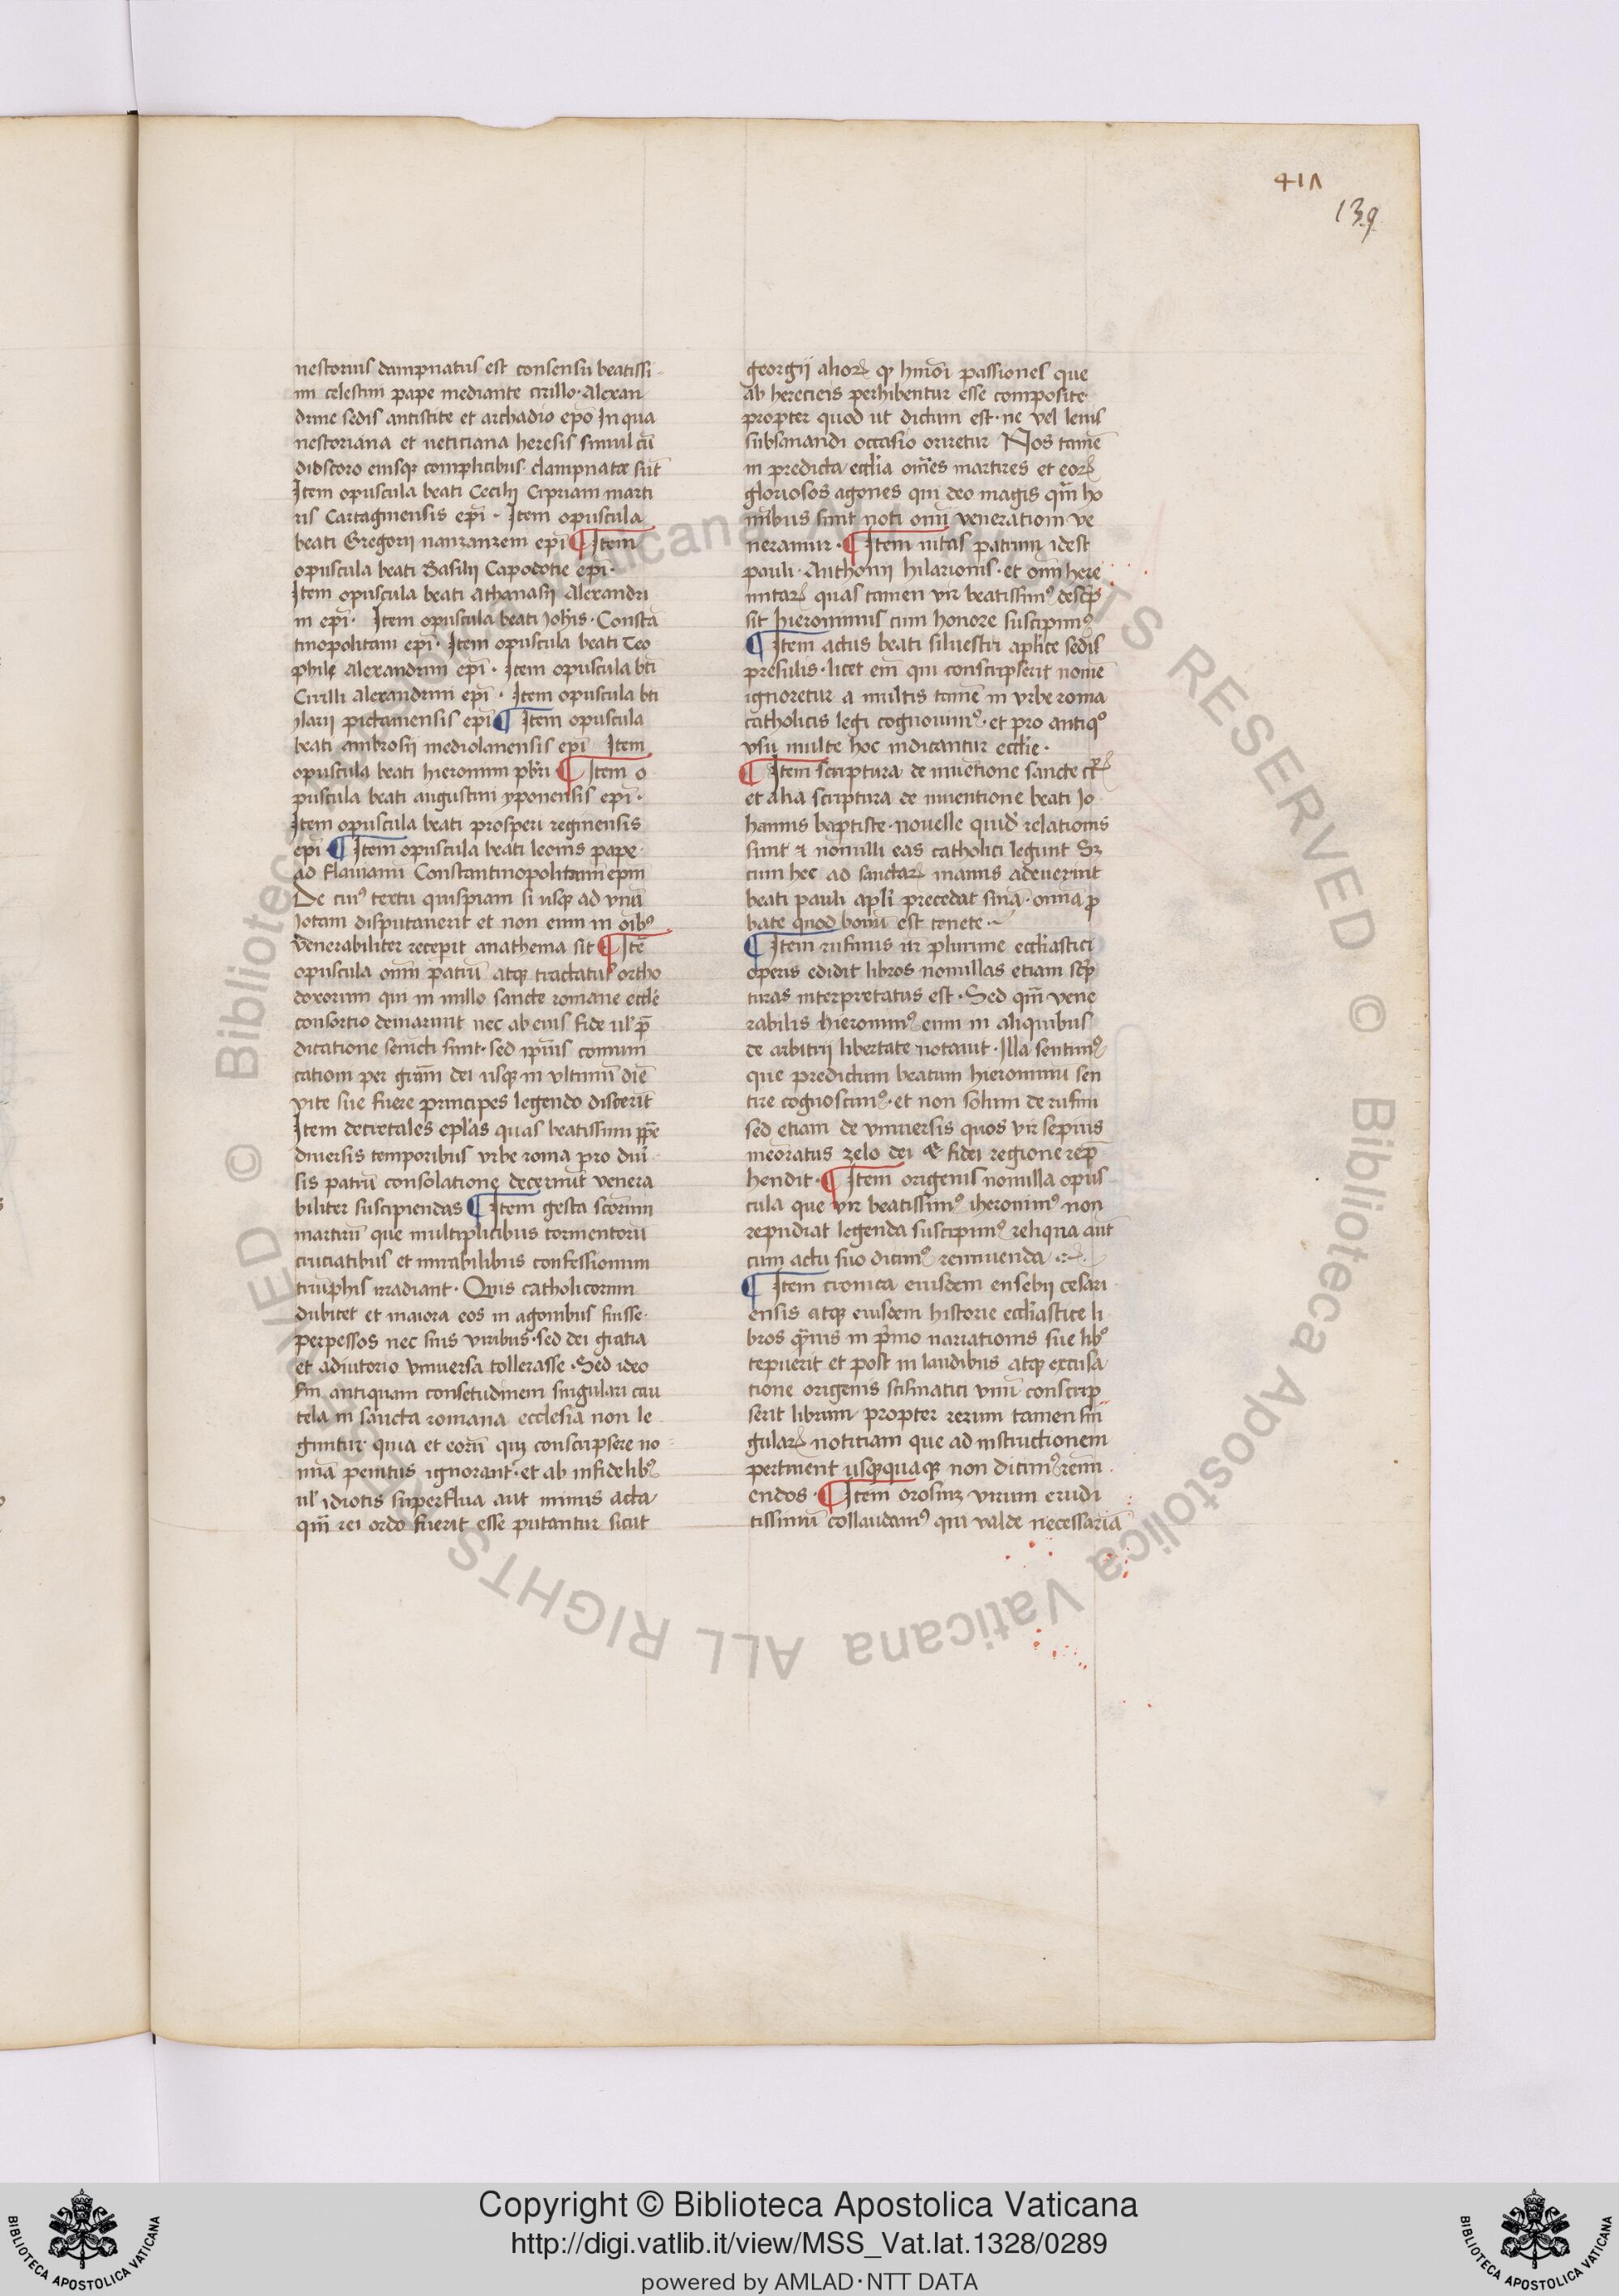 411
139
nestorius dampnatus est consensu beatissi-
mi celestini pape mediante cirillo · Alexan
drine sedis antistite et archadio epō In qua
nestoriana et ueticiana heresis simul cū
dioscoro eiusq̨ complicibus dampnate sūt
Item opuscula beati Cecilij Cipriani marti
ris Cartaginensis epī · Item opuscula
beati Gregorij nanzanzeni epī ¶ Item
opuscula beati Basilij Capodotie epī ·
Item opuscula beati Athanasij Alexandri
ni epī · Item opuscula beati Johīs · Constā
tinopolitani epī · Item opuscula beati Teo
phile Alexandrini epī · Item opuscula bti
Cirilli Alexandrini epī · Item opuscula bti
ylarij pictauensis epī ¶ Item opuscula
beati ambrosij mediolanensis epī Item
opuscula beati hieronimi pbrī ¶ Item o
puscula beati augustini yponensis epī ·
Item opuscula beati prosperi reginensis
epī ¶ Item opuscula beati leonis pape
ad flauianū Constantinopolitanū epm
De cuiꝰ textu quispiam si usq̨ ad vnū
Jotam disputauerit et non eum in oībꝰ
venerabiliter recepit anathema sit ¶ Itē
opuscula om̄i patrū atq̨ tractatuſ ortho
doxorum qui in nullo sancte romane eccłe
consortio deuiarunt nec ab eius fide ul' p̄
dicatione seiucti sunt · sed ipīus comuni
cationi per gr̄am dei usq̨ in vltimū diē
vite sue fuere principes legendo discerīt
Item decretales epłas quas beatissimi pp̄e
diuersis temporibus vrbe roma pro diu'
sis patrū consolatione decernūt venera
biliter suscipiendas ¶ Item gesta sc̄orum
martirū que multiplicibus tormentorū
cruciatibus et mirabilibus confessionum
triūphis irradiant · Quis catholicorum
dubitet et maiora eos in agonibus fuisse ·
perpessos nec suis viribus · sed dei gratia
et adiutorio vniuersa tollerasse · Sed ideo
sm̄ antiquam consetudinem singulari cau
tela in sancta romana ecclesia non le
guntur quia et eorū qui conscripsere no
mīa penitus ignorant' · et ab infidelibꝰ
ul' idiotis superflua aut minus acta
qm̄ rei ordo fuerit esse putantur sicut
georgij alioꝝ q̨ hmōi passiones que
ab hereticis perhibentur esse composite
propter quod ut dictum est · ne vel leuis
subsanandi occasio oriretur Nos tamē
in predicta ecclīa om̄es martires et eoꝝ
gloriosos agones qui deo magis qm̄ ho
mībus sunt noti omi veneratiom ve
neramur · ¶ Item uitas patrum idest
pauli · Anthonij hilarionis · et om̄i here
mitaꝝ quas tamen vir beatissimꝰ descp̄
sit hieronimus cum honore suscipimꝰ
¶ Item actus beati siluestri aplīce sedis
presulis · licet em̄ qui conscripserit nomē
ignoretur a multis tamē in vrbe roma
catholicis legi cognouimꝰ · et pro antiqo
vsu multe hoc indicantur ecclīe ·
¶ Item scriptura de inuētione sancte crꝝ
et alia scriptura de inuentione beati Jo
hannis baptiste · nouelle quid' relationis
sunt ⁊ nonulli eas catholici legunt Sꝫ
cum hec ad sanctaꝝ manus adeuerint
beati pauli aplī precedat sniā · omīa p
bate quod bonū est tenete ·
¶ Item rufinus ūr plurime ecclīastici
operis edidit libros nonullas etiam scp̄
turas interpretatus est · Sed qm̄ vene
rabilis hieronimꝰ eum in aliquibus
de arbitrij libertate notauit · Illa sentimꝰ
que predictum beatum hieronimū sen
tire cognoscimꝰ · et non solum de rufini
sed etiam de vniuersis quos vir sepius
meoratus zelo dei & fidei regione rep̄
hendit · ¶ Item origenis nonulla opus
cula que vir beatissimꝰ iheronimꝰ non
repudiat legenda suscipimꝰ reliqua aut̄
cum actu suo dicimꝰ rennuenda
¶ Item cronica eiusdem eusebij cesari
ensis atq̨ eiusdem historie ecclīastice li
bros q̄uis in p̄mo narrationis sue libꝰ
tepuerit et post in laudibus atq̨ excusa
tione origenis scismatici vnū conscrip
serit librum propter rerum tamen sin
gulaꝝ notitiam que ad instructionem
pertinent usq̨quaq̨ non dicimꝰ renū
endos · ¶ Item orosiuꝫ virum erudi
tissimū collaudamꝰ qui valde necessariā
© Biblioteca Apostolica Vaticana ALL RIGHTS RESERVED © Biblioteca Apostolica Vaticana ALL RIGHTS RESERVED
Copyright © Biblioteca Apostolica Vaticana
http://digi.vatlib.it/view/MSS_Vat.lat.1328/0289
powered by AMLAD · NTT DATA
BIBLIOTECA APOSTOLICA VATICANA
BIBLIOTECA APOSTOLICA VATICANA